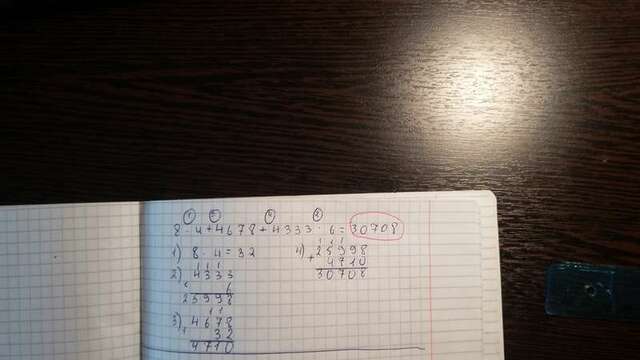 1 3 4 2
8 · 4 + 4678 + 4333 · 6 = 30708
1) 8 · 4 = 32
2) 4333
6
25998
3) 4678
+ 32
4710
4) 25998
+ 4710
30708